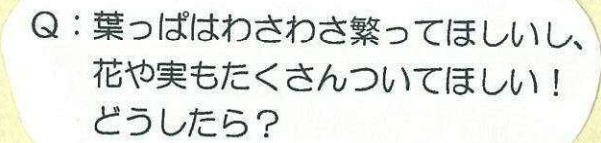 Q：葉っぱはわさわさ繁ってほしいし、
花や実もたくさんついてほしい！
どうしたら？